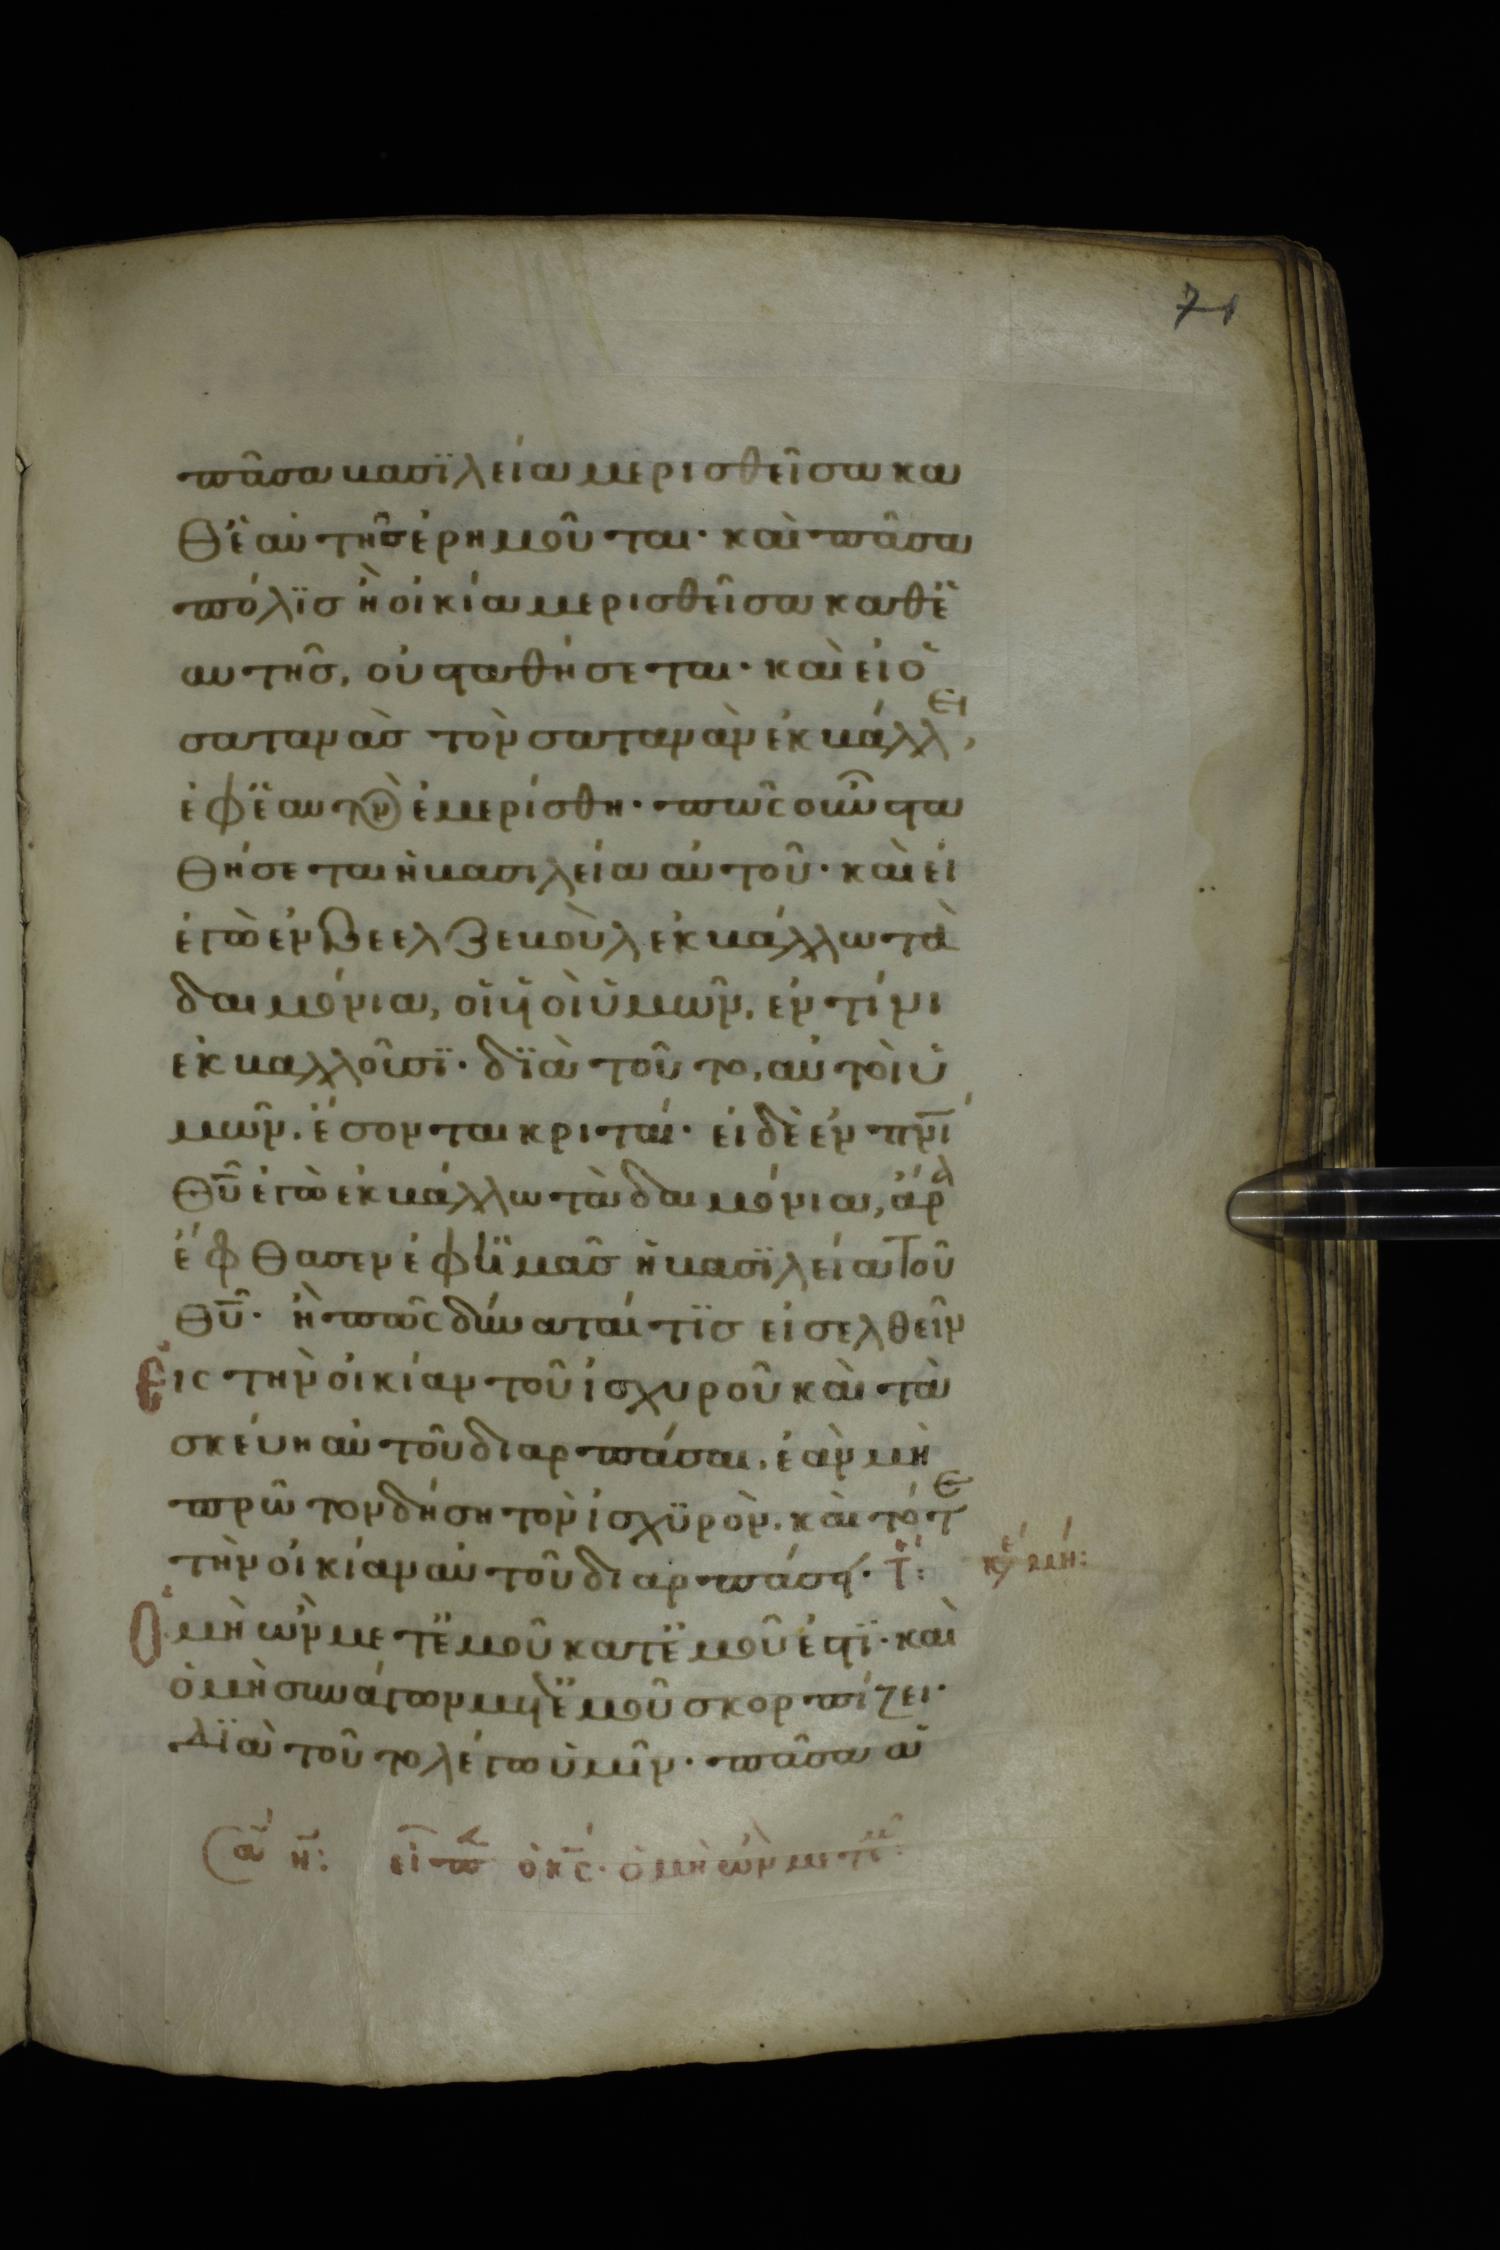 71
πᾶσα βασϊλεία μερισθεῖσα κα
θἑαυτῆς ἐρημοῦται· καὶ πᾶσα
πόλϊσ ἢ οἰκία μερισθεῖσα καθἑ
αυτῆσ, οὐ σταθήσεται· καὶ εἰ ὁ
σατανᾶσ τὸν σατανᾶν ἐκβάλλει,
ἐφἑαυτὸν ἐμερίσθη· πῶς οὖν στα
θήσεται ἡ βασιλεία αὐτοῦ· καὶ εἰ
ἐγὼ ἐν βεελζεβοὺλ ἐκβάλλω τὰ
δαιμόνια, οἱ ϋἱοὶ ὑμῶν, ἐν τίνι
ἐκβαλλοῦσϊ· δϊὰ τοῦτο, αὐτοὶ ὑ
μῶν, ἔσονται κριταί· εἰ δὲ ἐν πνι
θυ ἐγὼ ἐκβάλλω τὰ δαιμόνια, ἄρα
ἔφθασεν ἐφ ὑμᾶσ ἡ βασϊλεία τοῦ
θυ· ἢ πῶς δύναταί τϊσ εἰσελθεῖν
εἰς τὴν οἰκίαν τοῦ ἰσχυροῦ καὶ τὰ
σκεύη αὐτοῦ διαρπάσαι, ἐὰν μὴ
πρῶτον δήση τὸν ἰσχϋρὸν, καὶ τότε
τὴν οἰκίαν αὐτοῦ διαρπάση· τ: κε μη:
Ὁ μὴ ὢν μετἐμοῦ κατἐμοῦ ἐστϊ· καὶ
ὁ μὴ συνάγων μετἐμοῦ σκορπίζει·
Δϊὰ τοῦτο λέγω ὑμῖν· πᾶσα ἁ
η: εἶπ ὁ κς· ὁ μὴ ὢν μετἐμ